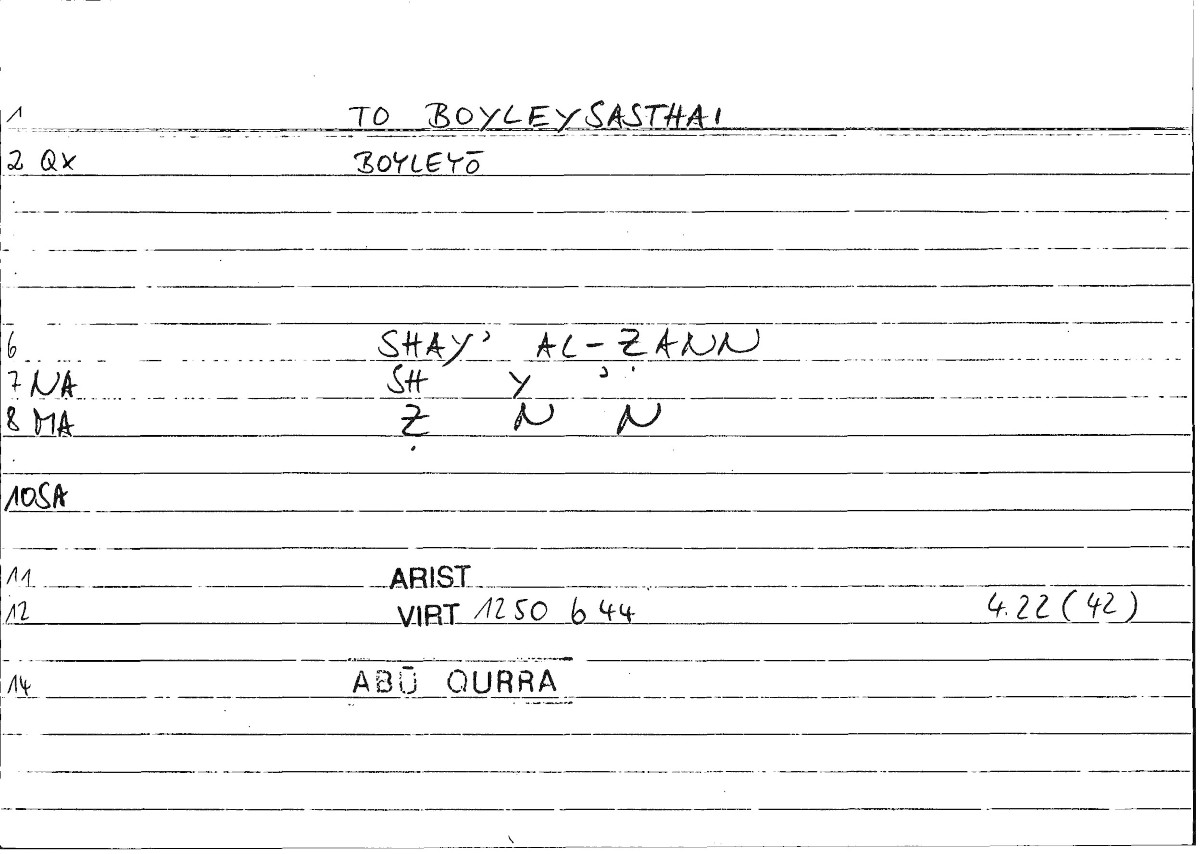 1 TO BOYLEYSASTHAI
2 QX BOYLEYŌ
6 SHAY' AL-ẒANN
7 NA SH Y '
8 MA Ẓ N N
10SA
11 ARIST
12 VIRT 1250 b 44 4.22 (42)
14 ABŪ QURRA